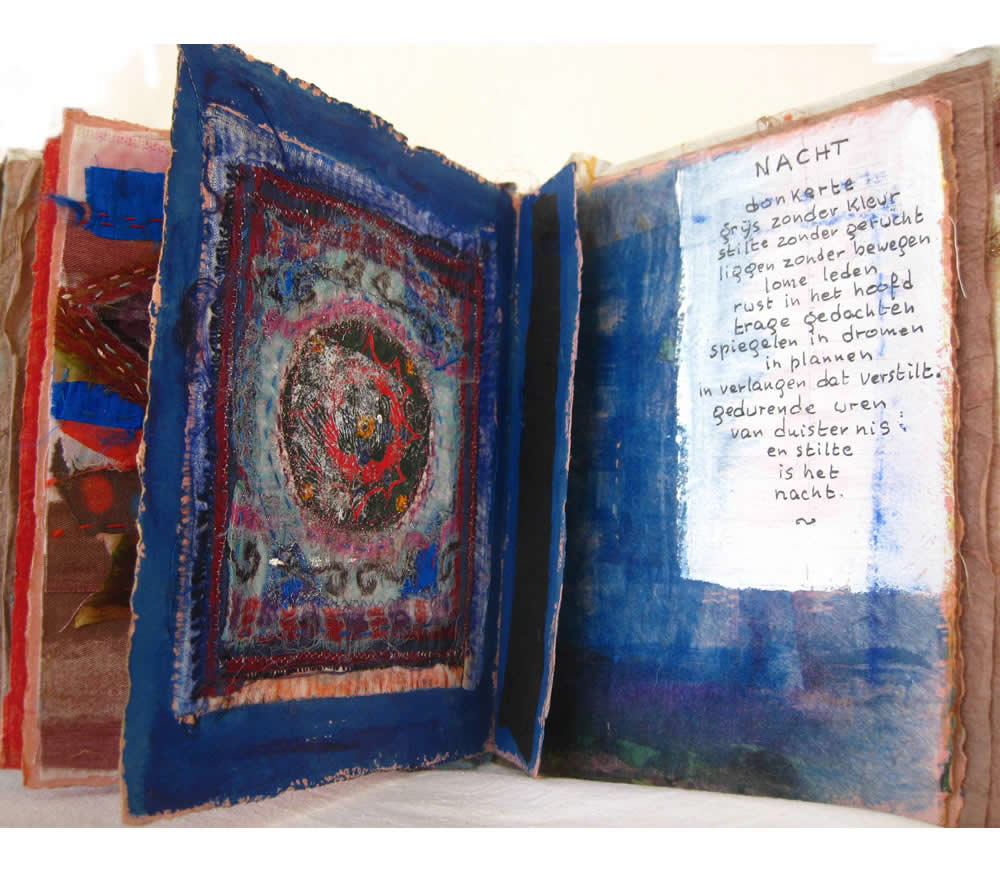 NACHT
donkerte
grijs zonder kleur
stilte zonder gerucht
liggen zonder bewegen
lome leden
rust in het hoofd
trage gedachten
spiegelen in dromen
in plannen
in verlangen dat verstilt.
gedurende uren
van duisternis :
en stilte
is het
nacht.